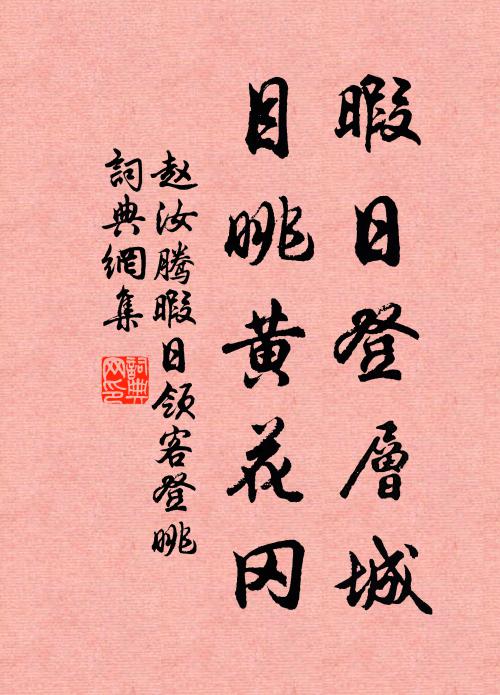 暇日登層城
目眺黄花冈
赵汝騰暇日领客登眺
詞典網集
詞典網印